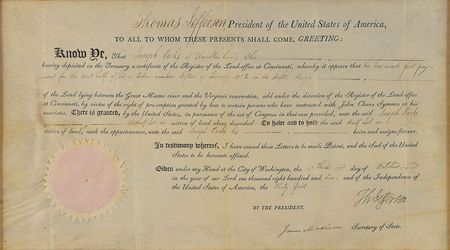 Thomas Jefferson President of the United States of America,
TO ALL TO WHOM THESE PRESENTS SHALL COME, GREETING:
Know Ye, That Joseph Parks of Hamilton County Ohio
having deposited in the Treasury a certificate of the Register of the Land-office at Cincinnati, whereby it appears that he has made full pay
ment for the
of the Land lying between the Great Miami river and the Virginia reservation, sold under the direction of the Register of the Land-office at
Cincinnati, by virtue of the right of pre-emption granted by law to certain persons who have contracted with John Cleves Symmes or his
associates, There is granted, by the United States, in pursuance of the act of Congress in that case provided, unto the said Joseph Parks
section of land above described: To have and to hold the said half lot or
section of land, with the appurtenances, unto the said Joseph Parks his heirs and assigns forever.
In testimony whereof, I have caused these Letters to be made Patent, and the Seal of the United
States to be hereunto affixed.
Given under my Hand at the City of Washington, the day of October
in the year of our Lord one thousand eight hundred and and of the Independence of
the United States of America, the Thirty first
BY THE PRESIDENT,
Th: Jefferson
James Madison Secretary of State.